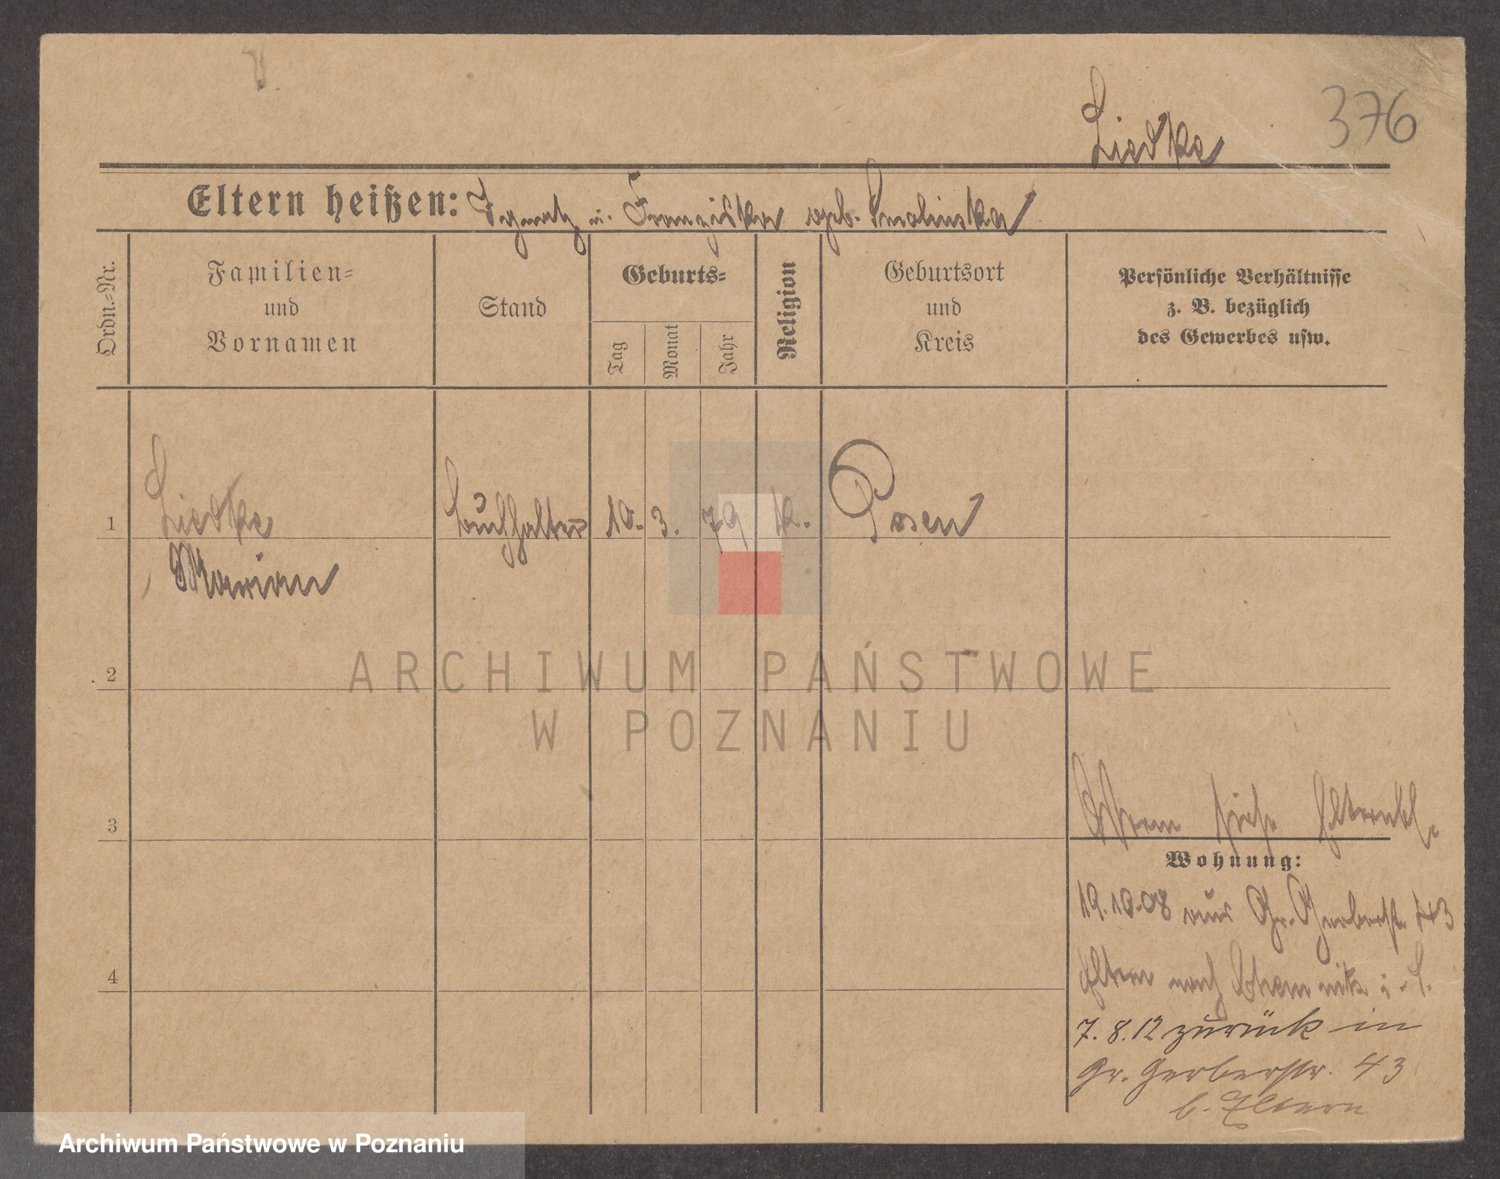 376
Liedke
Eltern heißen: Ignatz u. Franziska geb. Smolinska
Ordn.-Nr.
Familien-
und
Vornamen
Stand
Geburts-
Tag
Monat
Jahr
Religion
Geburtsort
und
Kreis
Persönliche Verhältnisse
z. B. bezüglich
des Gewerbes usw.
1
Liedke
Marian
Buchhalter
10.
3.
79
k.
Posen
2
ARCHIWUM PAŃSTWOWE
W POZNANIU
3
Eltern siehe Elternbl.
Wohnung:
19.10.08 aus Gr. Gerberstr. 43
Eltern nach Chemnitz i. S.
4
7. 8. 12 zurück in
Gr. Gerberstr. 43
b. Eltern
Archiwum Państwowe w Poznaniu